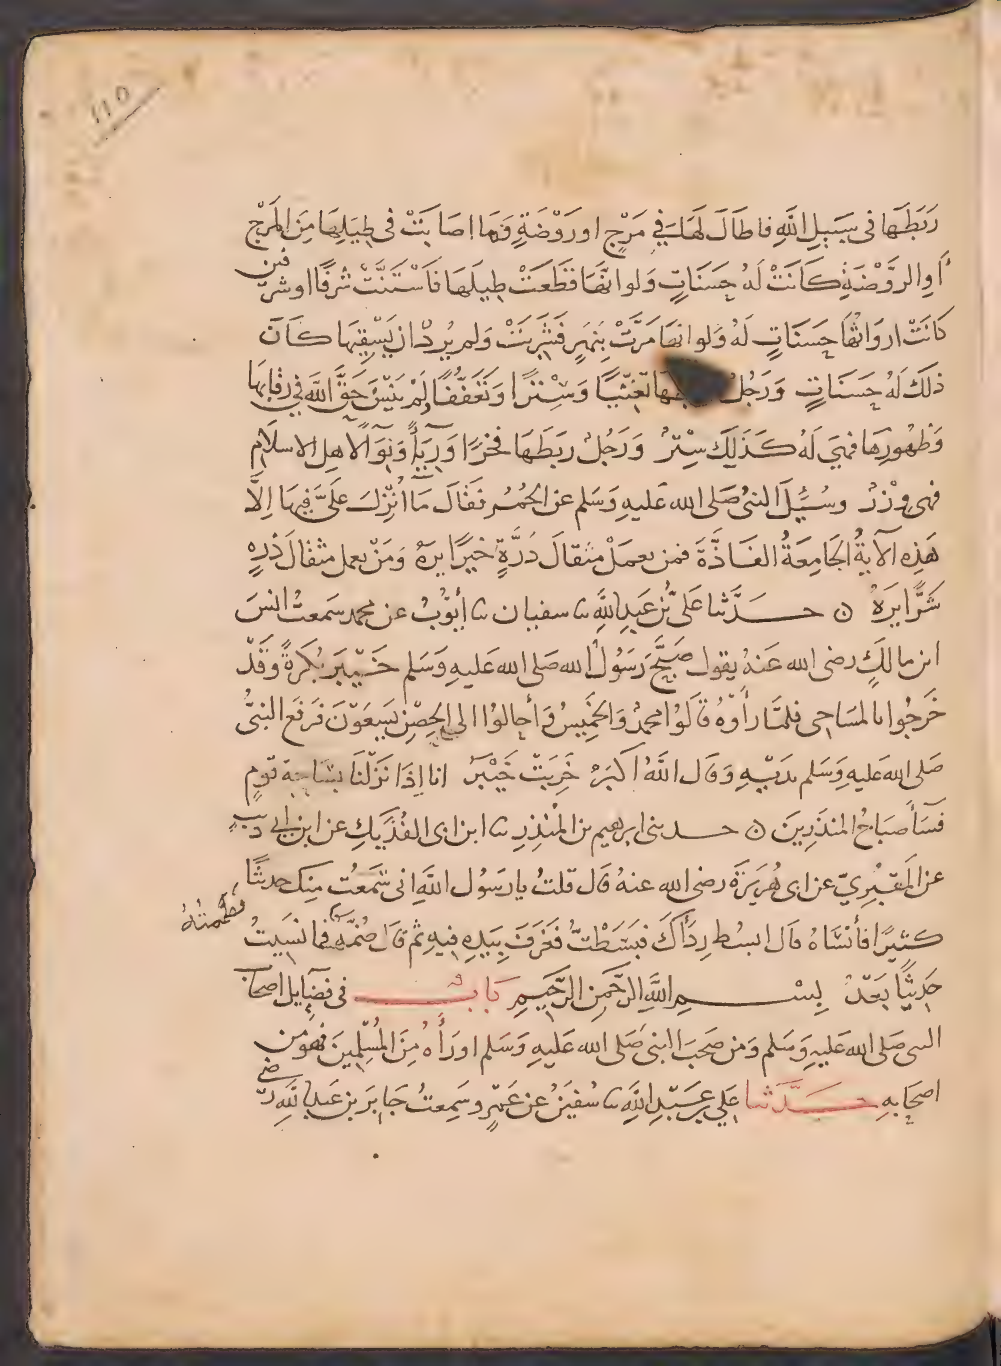 ١١٥
رَبَطَهَا في سَبِيلِ اللَّهِ فاطَالَ لَهَا في مَرْجٍ اورَوْضَةٍ فَمَا اصَابَتْ فى طِيَلِهَا مِنَ المَرْجِ
أَوِ الرَّوْضَةِ كَانَتْ لَهُ حَسَنَاتٍ وَلو انَّهَا قَطَعَتْ طِيَلَهَا فَاسْتَنَّتْ شَرَفًا او شرفين
كَانَتْ اروَاثُهَا حَسَنَاتٍ لَهُ وَلو انهَا مَرَّتْ بِنَهَرٍ فَشَرِبَتْ وَلم يُرِدْ ان يَسْقِيَهَا كَانَ
ذلكَ لَهُ حَسَنَاتٍ وَرَجُلٌ تَغَنِّيًا وَسِتْرًا وَتَعَفُّفًا لَمْ يَنْسَ حَقَّ اللَّهِ في رِقَابِهَا
وَظهُورِهَا فهِيَ لَهُ كَذَلِكَ سِتْرٌ وَرَجُلٌ رَبَطَهَا فَخْرًا وَرِيَاءً وَنِوَآءً لأهل الاسلام
فهى وِزْرٌ وسُئِلَ النبىُّ صَلى الله عَليهِ وَسَلم عن الحُمُرِ فَقَالَ مَا أُنْزِلَ عَلَىَّ فِيهَا اِلَّا
هَذِهِ الآيَةُ الجَامِعَةُ الفَاذَّةُ فمن يعمَلْ مثقالَ ذَرَّةٍ خَيْرًا يرهُ وَمَنْ يعمل مثقالَ ذرةٍ
شَرًّا يَرَهُ ۞ حَدَّثنا عَلىُّ بْنُ عَبدِ اللَّهِ سا سفيان سا أيُّوبُ عن محمد سَمعتُ انسَ
ابن مالكٍ رضى الله عَنهُ يقول صَبَّحَ رَسُولُ الله صَلى الله عَليهِ وَسَلم خَيْبَرَ بُكرَةً وَقَدْ
خَرَجُوا بالمَسَاحى فلمَّا رأَوْهُ قَالُوا محمدٌ وَالخَمِيسُ وَأَحالوُا الى الحِصْنِ يَسعَوْنَ فَرَفَعَ النبىُّ
صَلى الله عَليهِ وَسَلم يدَيْهِ وَقَال اللَّهُ اكبَرُ خَرِبَتْ خَيْبَرُ انا إذَا نَزَلْنَا بسَاحَةِ قومٍ
فَسَآءَ صَبَاحُ المُنذَرِينَ ۞ حدثنى ابرهيم بن المُنْذِرِ سا ابن ابى الفُدَيْكِ عن ابن ابى ذيبٍ
عن المَقبُرِيّ عن ابى هُرَيرَةَ رضى الله عنهُ قَال قلتُ يا رَسُول اللَّهِ انى سَمَعت مِنكَ حديثًا
كثيرًا فأنسَاهُ قال ابسُط رِدَآكَ فبَسَطْتُ فغَرَفَ بِيَدِهِ فيهِ ثم قال ضُمَّهُ فما نَسِيتُ
فضممتهُ
حَدِيثًا بَعْدُ بِسْمِ اللَّهِ الرَّحمنِ الرَّحِيمِ بَابٌ فى فضَايل اصحاب
النبى صَلى الله عَليهِ وَسَلم وَمن صَحِبَ النبىَّ صَلى الله عَليهِ وَسَلم او رَآهُ مِنَ المُسْلِمينَ فهو من
اصحَابِهِ حَدَّثنا عَلى بن عَبْدِ اللَّهِ سا سُفيَنُ عن عَمْرٍ وسَمِعتُ جَابرَ بن عَبدِ اللَّهِ رضى